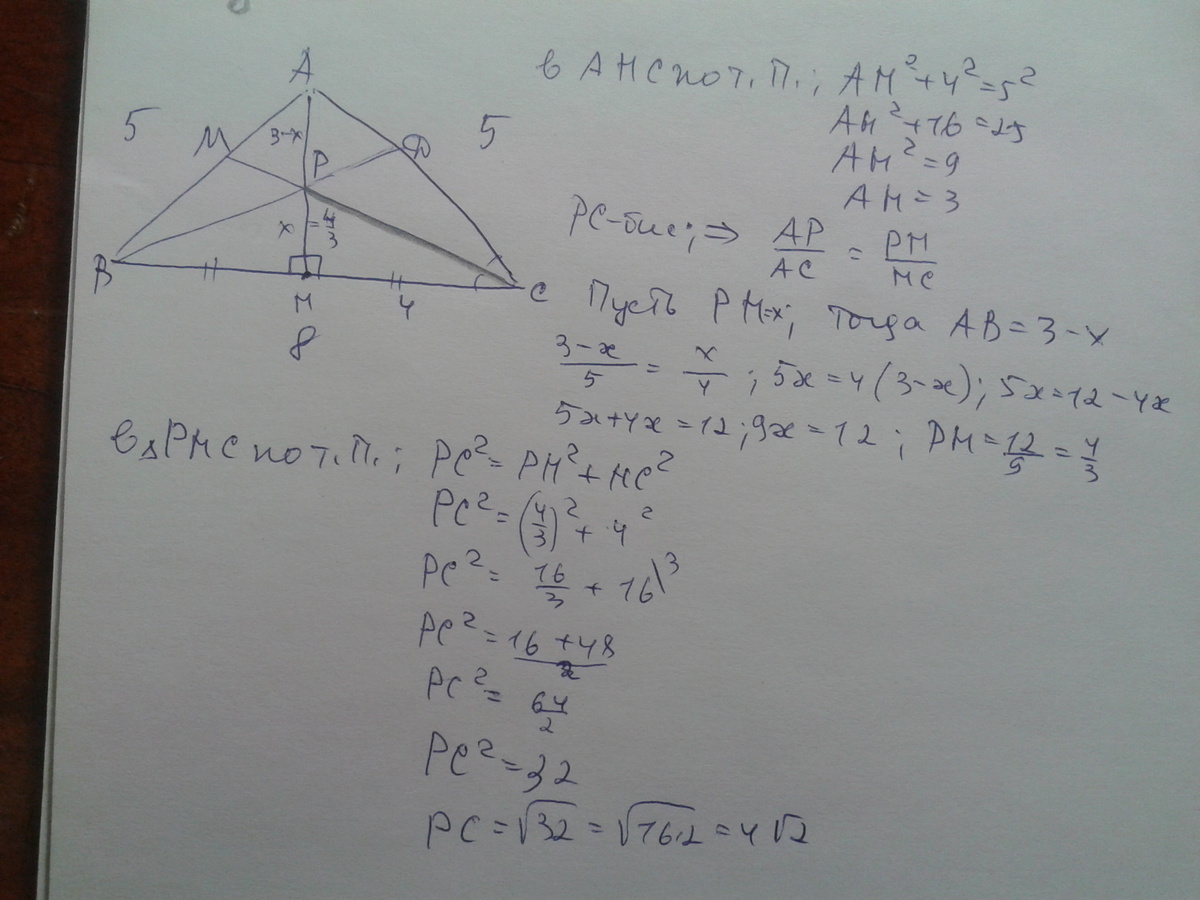 A
5
M
3-x
P
D
5
x = 4/3
B
H
4
C
8
в AHC по т. П.; AH²+4²=5²
AH²+16=25
AH²=9
AH=3
PC-бис; ⇒ AP/AC = PH/HC
Пусть PH=x; тогда AB=3-x
(3-x)/5 = x/4; 5x=4(3-x); 5x=12-4x
5x+4x=12; 9x=12; PH=12/9=4/3
в △PHC по т. П.; PC²=PH²+HC²
PC²=(4/3)²+4²
PC²=16/3+16\3
PC²=(16+48)/2
PC²=64/2
PC²=32
PC=√32=√16·2=4√2